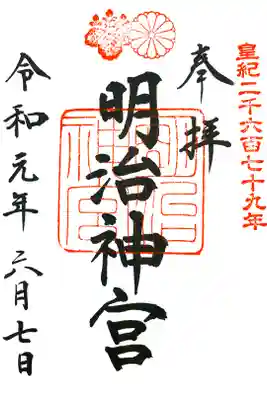 皇紀二千六百七十九年
奉拝
明治神宮
令和元年六月七日